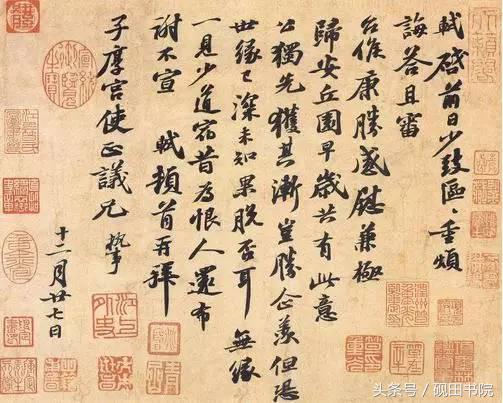 軾啓前日少致區〻重煩
誨答且審
台候康勝感慰兼極
歸安丘園早歲共有此意
公獨先獲其漸豈勝企羨但恐
世緣已深未知果脫否耳無緣
一見少道宿昔為恨人還布
謝不宣 軾頓首再拜
子厚宮使正議兄 執事
十二月廿七日
头条号 / 砚田书院